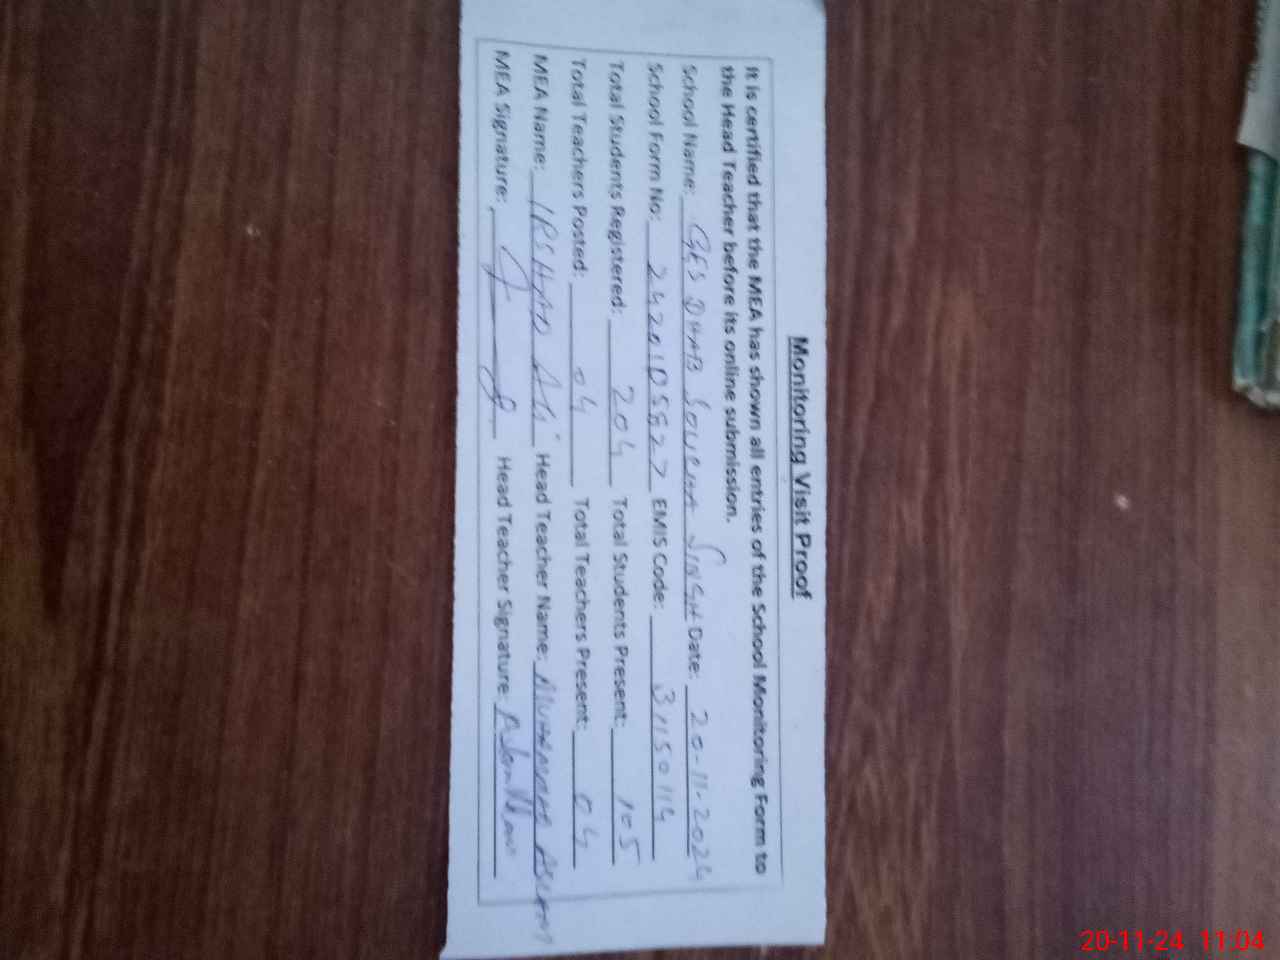 Monitoring Visit Proof
It is certified that the MEA has shown all entries of the School Monitoring Form to
the Head Teacher before its online submission.
School Name: GES DHAB SINGH Date: 20-11-2024
School Form No: 2420105827 EMIS Code: 31150114
Total Students Registered: 204 Total Students Present: 105
Total Teachers Posted: 04 Total Teachers Present: 04
MEA Name: IRSHAD Ali Head Teacher Name: MUHAMMAD ASLAM
MEA Signature: Head Teacher Signature:
20-11-24 11:04